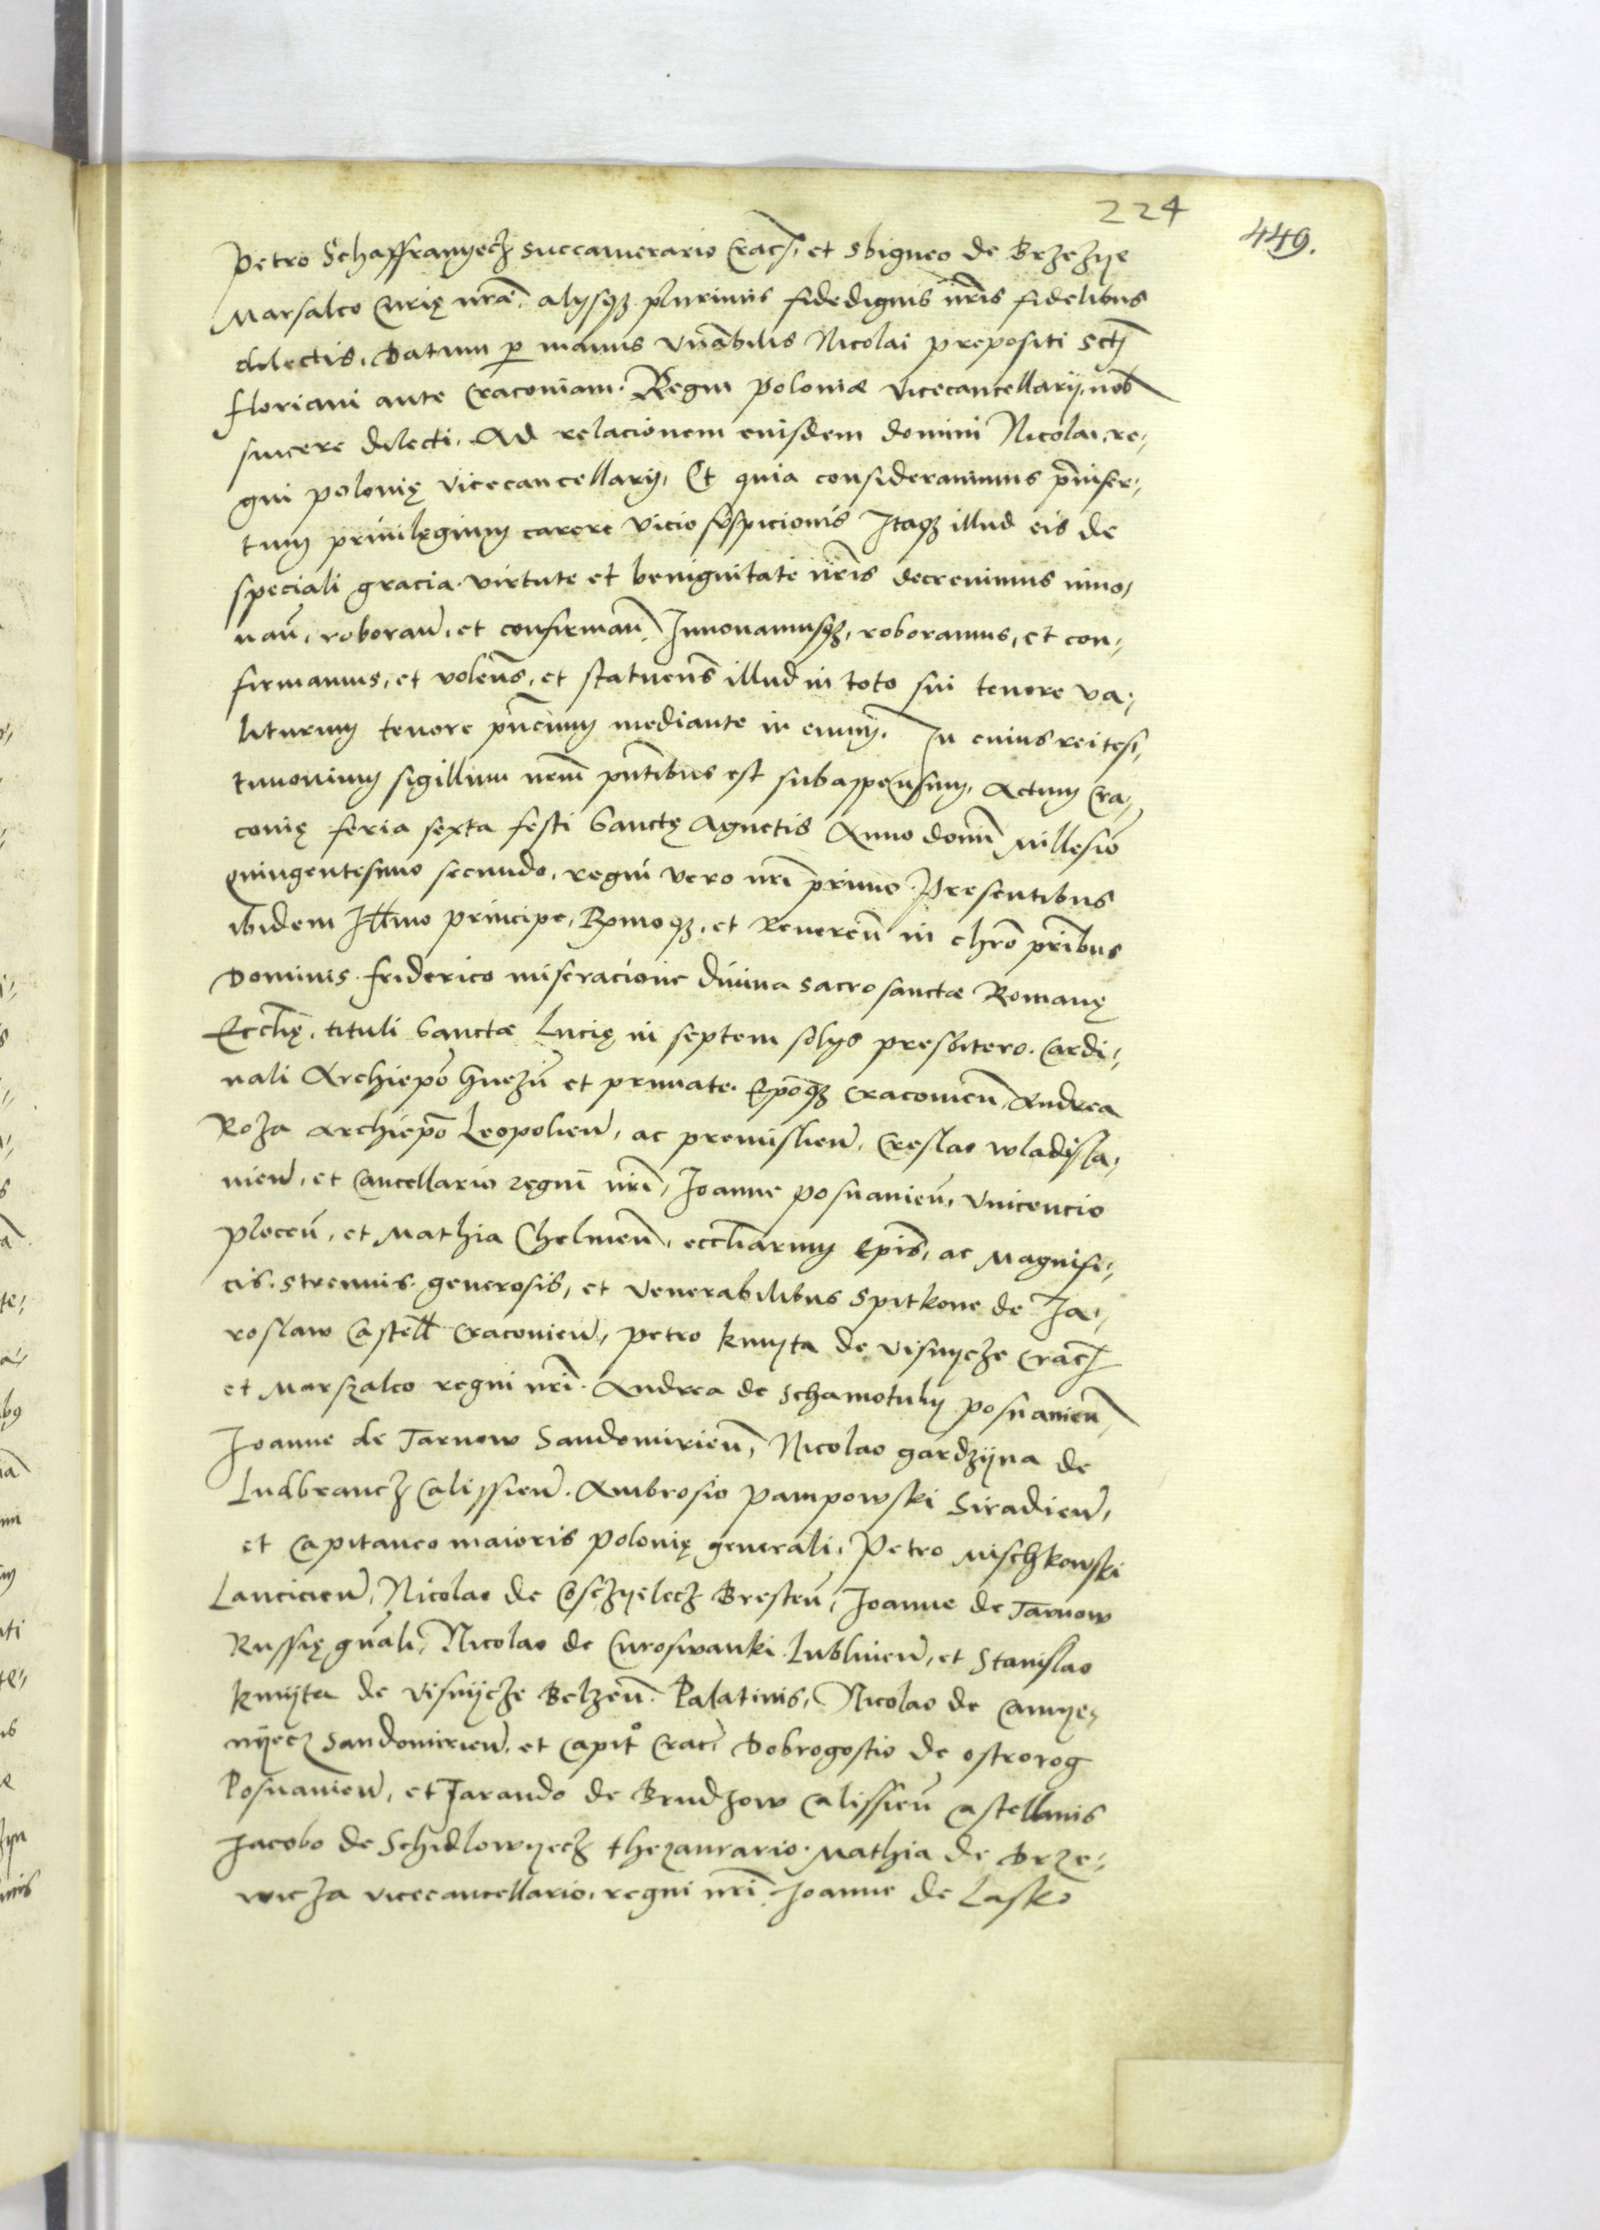 224
449.
Petro Schaffranyecz succamerario Crac. et Sbigneo de Brzezye
Marsalco Curię nrē. alijsqz plurimis fidedignis nr̄is fidelibus
dilectis. Datum p manus Vn̄abilis Nicolai prepositi Scti
floriani ante Cracoviam. Regni poloniæ Vicecancellarij. nob
sincere dilecti. Ad relacionem eiusdem domini Nicolai, re,
gni polonię Vicecancellarij, Et quia consideravimus p̄inser,
tum privilęgium carere vicio suspicionis Itaqz illud eis de
speciali gracia. virtute et benignitate nr̄is decrevimus inno,
nan̄, roboran̄, et confirman̄. Innovamusqz, roboramus, et con,
firmamus, et volen̄s, et statuen̄s illud in toto sui tenore va,
liturum tenore pn̄cium mediante in evum. In cuius rei tesi,
timonium sigillum nrm̄ pn̄tibus est subappensum. Actum Cra,
covię feria sexta festi Sanctę Agnetis Anno domi Millesio
quingentesimo secundo. regni vero nr̄i primo. Presentibus
ibidem Illmo principe, Rmoqz. et Reveren̄ in chro p̄ribus
Dominis. friderico miseracione divina sacro sanctæ Romanę
Ecclię. tituli Sanctæ Lucię in septem solijs presbitero. Cardi,
nali Archiepo Gnezn̄ et primate. Epoqz Cracovien̄ Andrea
Roza Archiepo Leopolien̄, ac premislien̄, Creslao wladisla,
vien̄, et Cancellario regni nr̄i, Joanne posnanien̄, Vincencio
plocen̄, et Mathia Chelmen̄, eccliarum Epis, ac Magnifi,
cis. Strenuis. generosis, et Venerabilibus Spitkone de Ja,
roslaw Castell Cracovien̄, petro kmyta de visnycze Crac
et Marszalco regni nr̄i. Andrea de Schamotuly posnanien̄
Joanne de Tarnow Sandomirien̄, Nicolao gardzyna de
Ludbrancz Calissien̄. Ambrosio pampowski Siradien̄,
et Capitaneo maioris polonię generali. Petro Mischkowski
Lancicien̄, Nicolao de Cosczyelecz Bresten̄, Joanne de Tarnow
Russię gn̄ali, Nicolao de Curoswanki Lublinen̄, et Stanislao
kmyta de visnycze Belzen̄. Palatinis, Nicolao de Camye,
nyecz Sandomirien̄. et Capito Crac. Dobrogostio de ostrorog
Posnanien̄, et Jarando de Brudzow Calissien̄ Castellanis
Jacobo de Schidlowyecz thezaurario. Mathia de Drze,
wicza vicecancellario. regni nr̄i. Joanne de Lasko